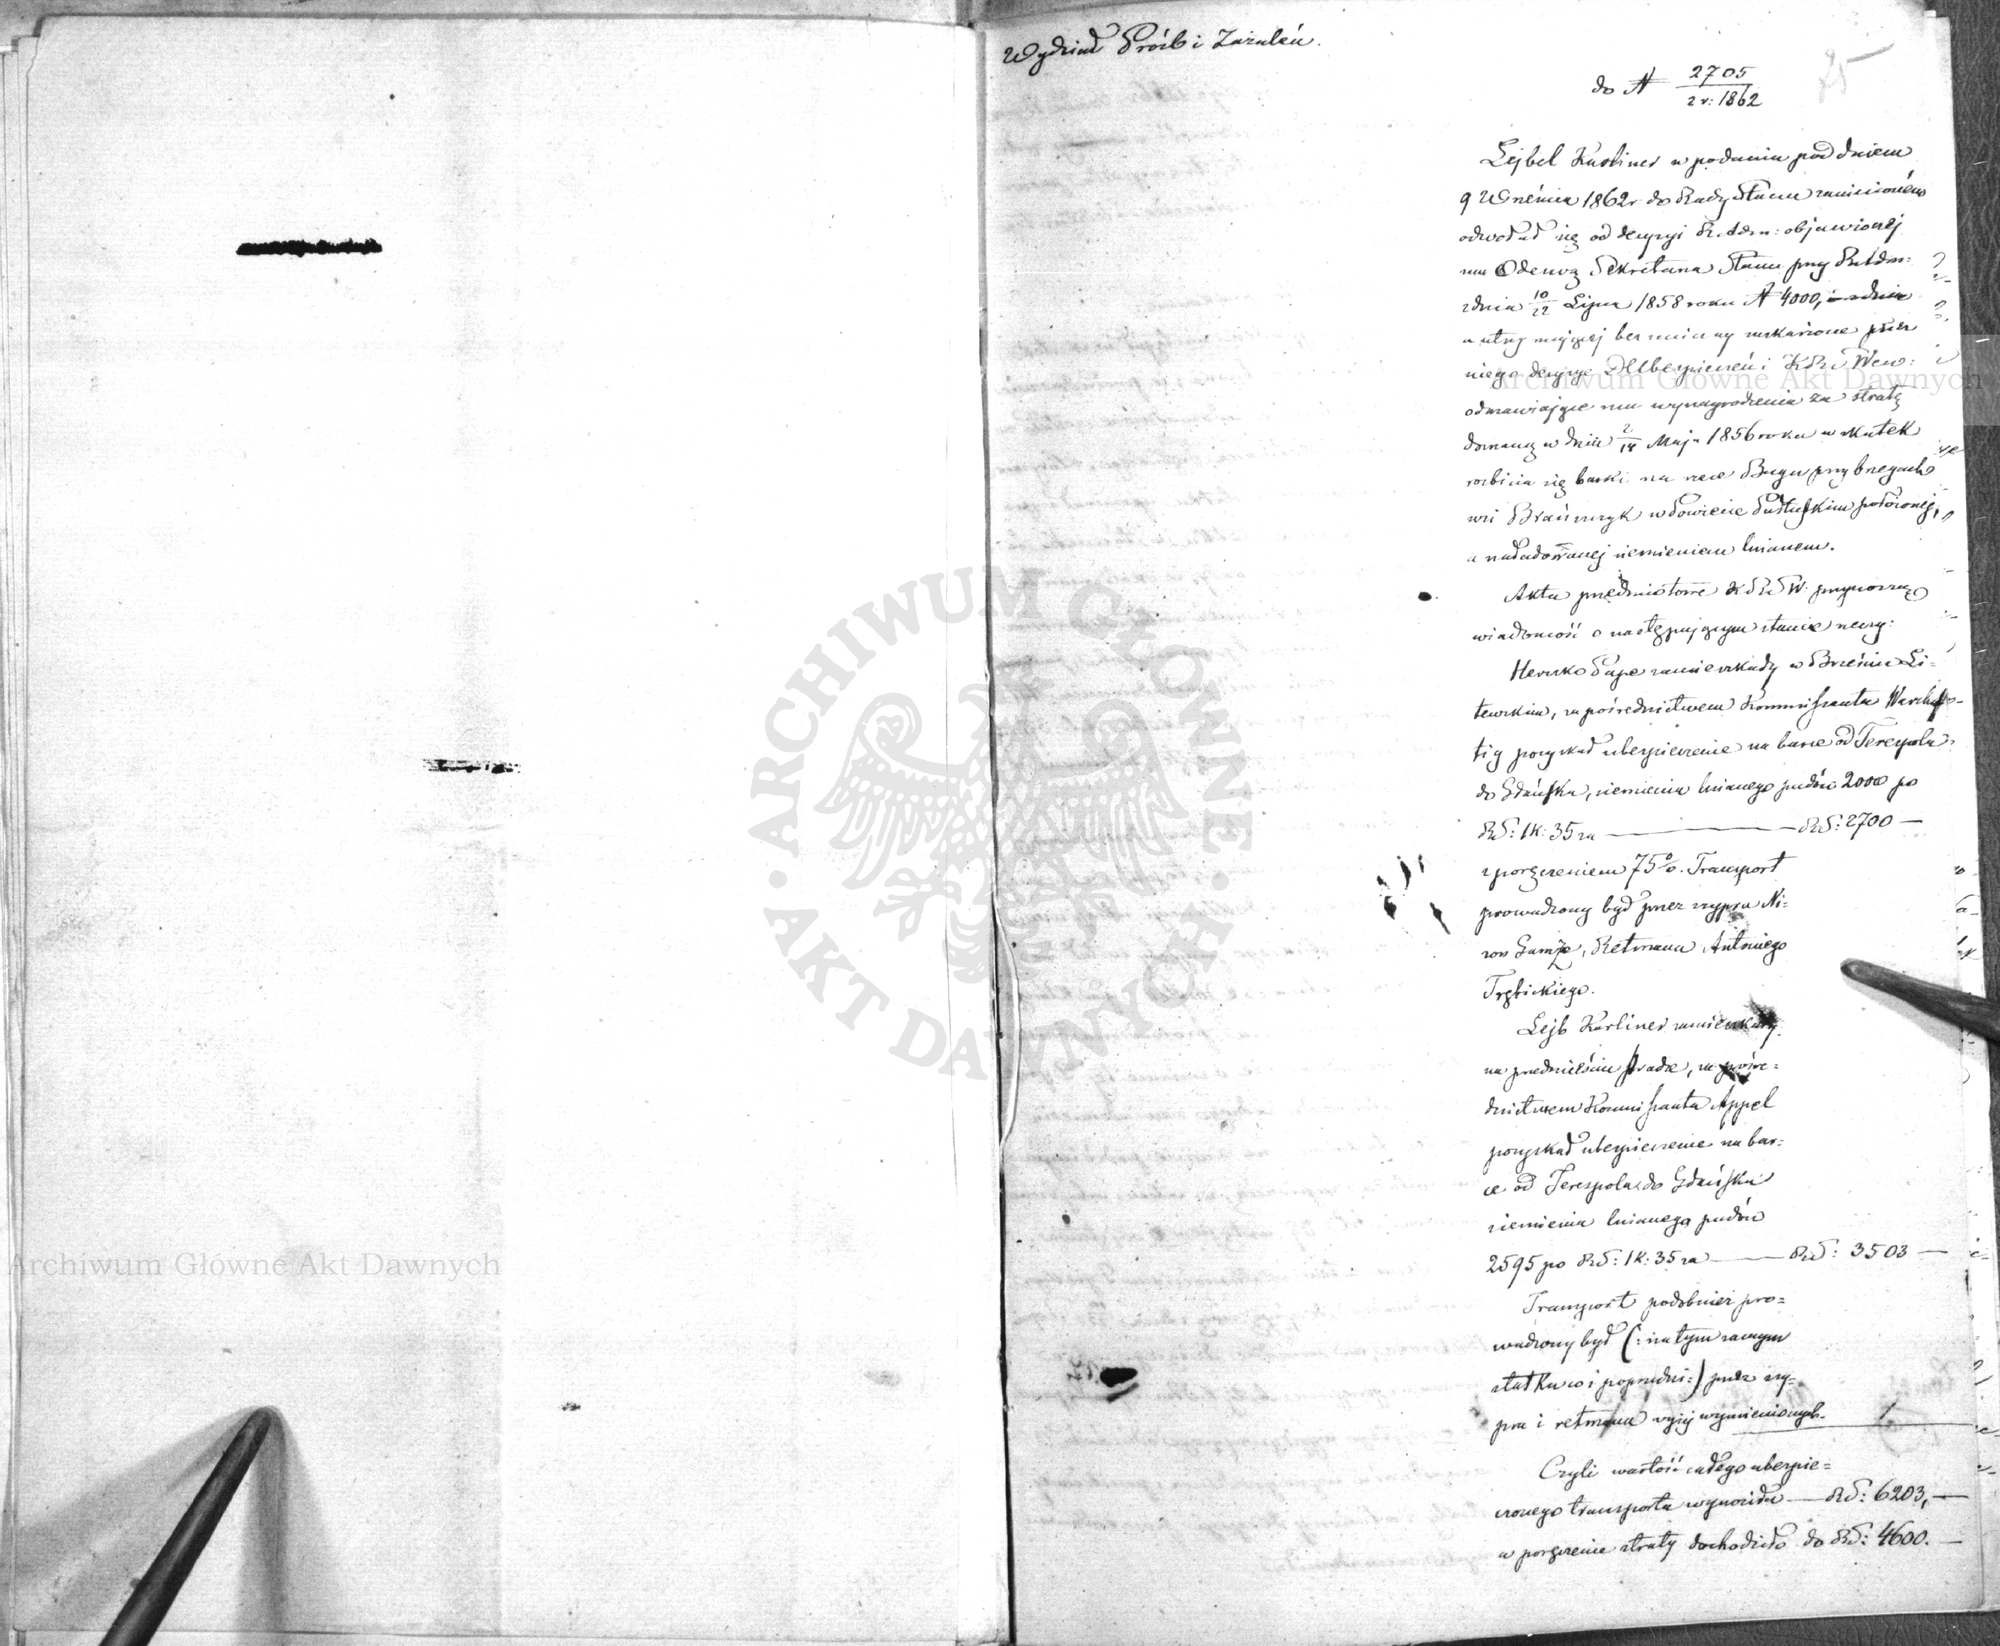 Wydział Próśb i Zażaleń.
25
do № 2705
2 r: 1862
Lejbel Karliner w podaniu pod dniem
9 Września 1862 r do Rady Stanu zaniesionem
odwołał się od decyzyi R. Adm: objawionej
mu Odezwą Sekretarza Stanu przy R. Adm:
z dnia 10/22 Lipca 1858 roku № 4000,
a utrzymującej bez zmiany zaskarżone przez
niego decyzye D. Ubezpieczeń i K R S Wew:
odmawiające mu wynagrodzenia za stratę
doznaną w dniu 2/14 Maja 1856 roku w skutek
rozbicia się barki na rzece Bugu przy brzegach
wsi Brańszczyk w Powiecie Pułtuskim położonej,
a naładowanej siemieniem lnianem.
Akta przedmiotowe K R S W. przynoszą
wiadomość o następującym stanie rzeczy:
Herszko Pape zamieszkały w Brześciu Li-
tewskim, za pośrednictwem Kommissanta
pozyskał ubezpieczenie na barce od Terespola
do Gdańska, siemienia lnianego pudów 2000 po
RS: 1 k: 35 za — RS: 2700 —
z poręczeniem 75%. Transport
prowadzony był przez szypra Ni-
Retmana Antoniego
Trębickiego.
Lejb Karliner zamieszkały
na przedmieściu Pradze, za pośre-
dnictwem Kommissanta Appel
pozyskał ubezpieczenie na bar-
ce od Terespola do Gdańska
siemienia lnianego pudów
2595 po RS: 1 k: 35 za — RS: 3503 —
Transport podobnież pro-
wadzony był (: na tym samym
statku co i poprzedni :) przez szy-
pra i retmana wyżej wymienionych.
Czyli wartość całego ubezpie-
czonego transportu wynosiła — RS: 6203, —
a poręczenie straty dochodziło do RS: 4600. —
Archiwum Główne Akt Dawnych
Archiwum Główne Akt Dawnych
ARCHIWUM GŁÓWNE · AKT DAWNYCH ·